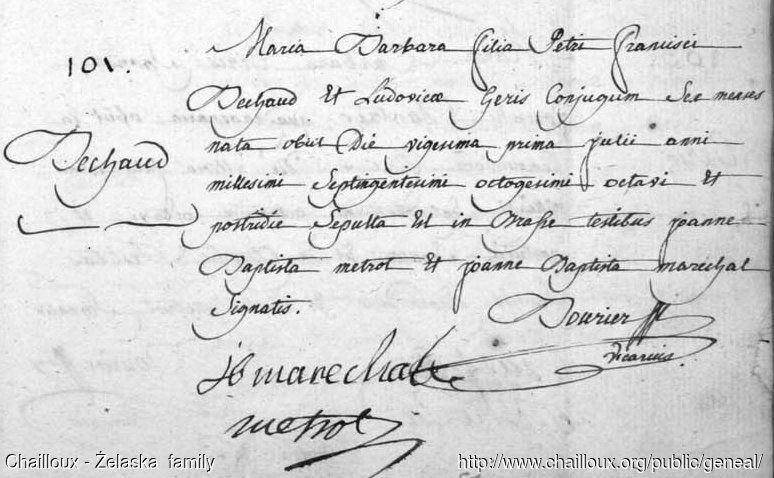 101.
Dechaud
Maria Barbara filia Petri Francisci
Dechaud et Ludovicæ Geris Conjugum Sex menses
nata obiit Die vigesima prima julii anni
millesimi Septingentesimi octogesimi octavi et
postridie Sepulta Est in testibus joanne
Baptista metrot et joanne Baptista marechal
Signatis.
Dourier
vicarius
JB marechal
metrot
Chailloux - Żelaska family
http://www.chailloux.org/public/geneal/